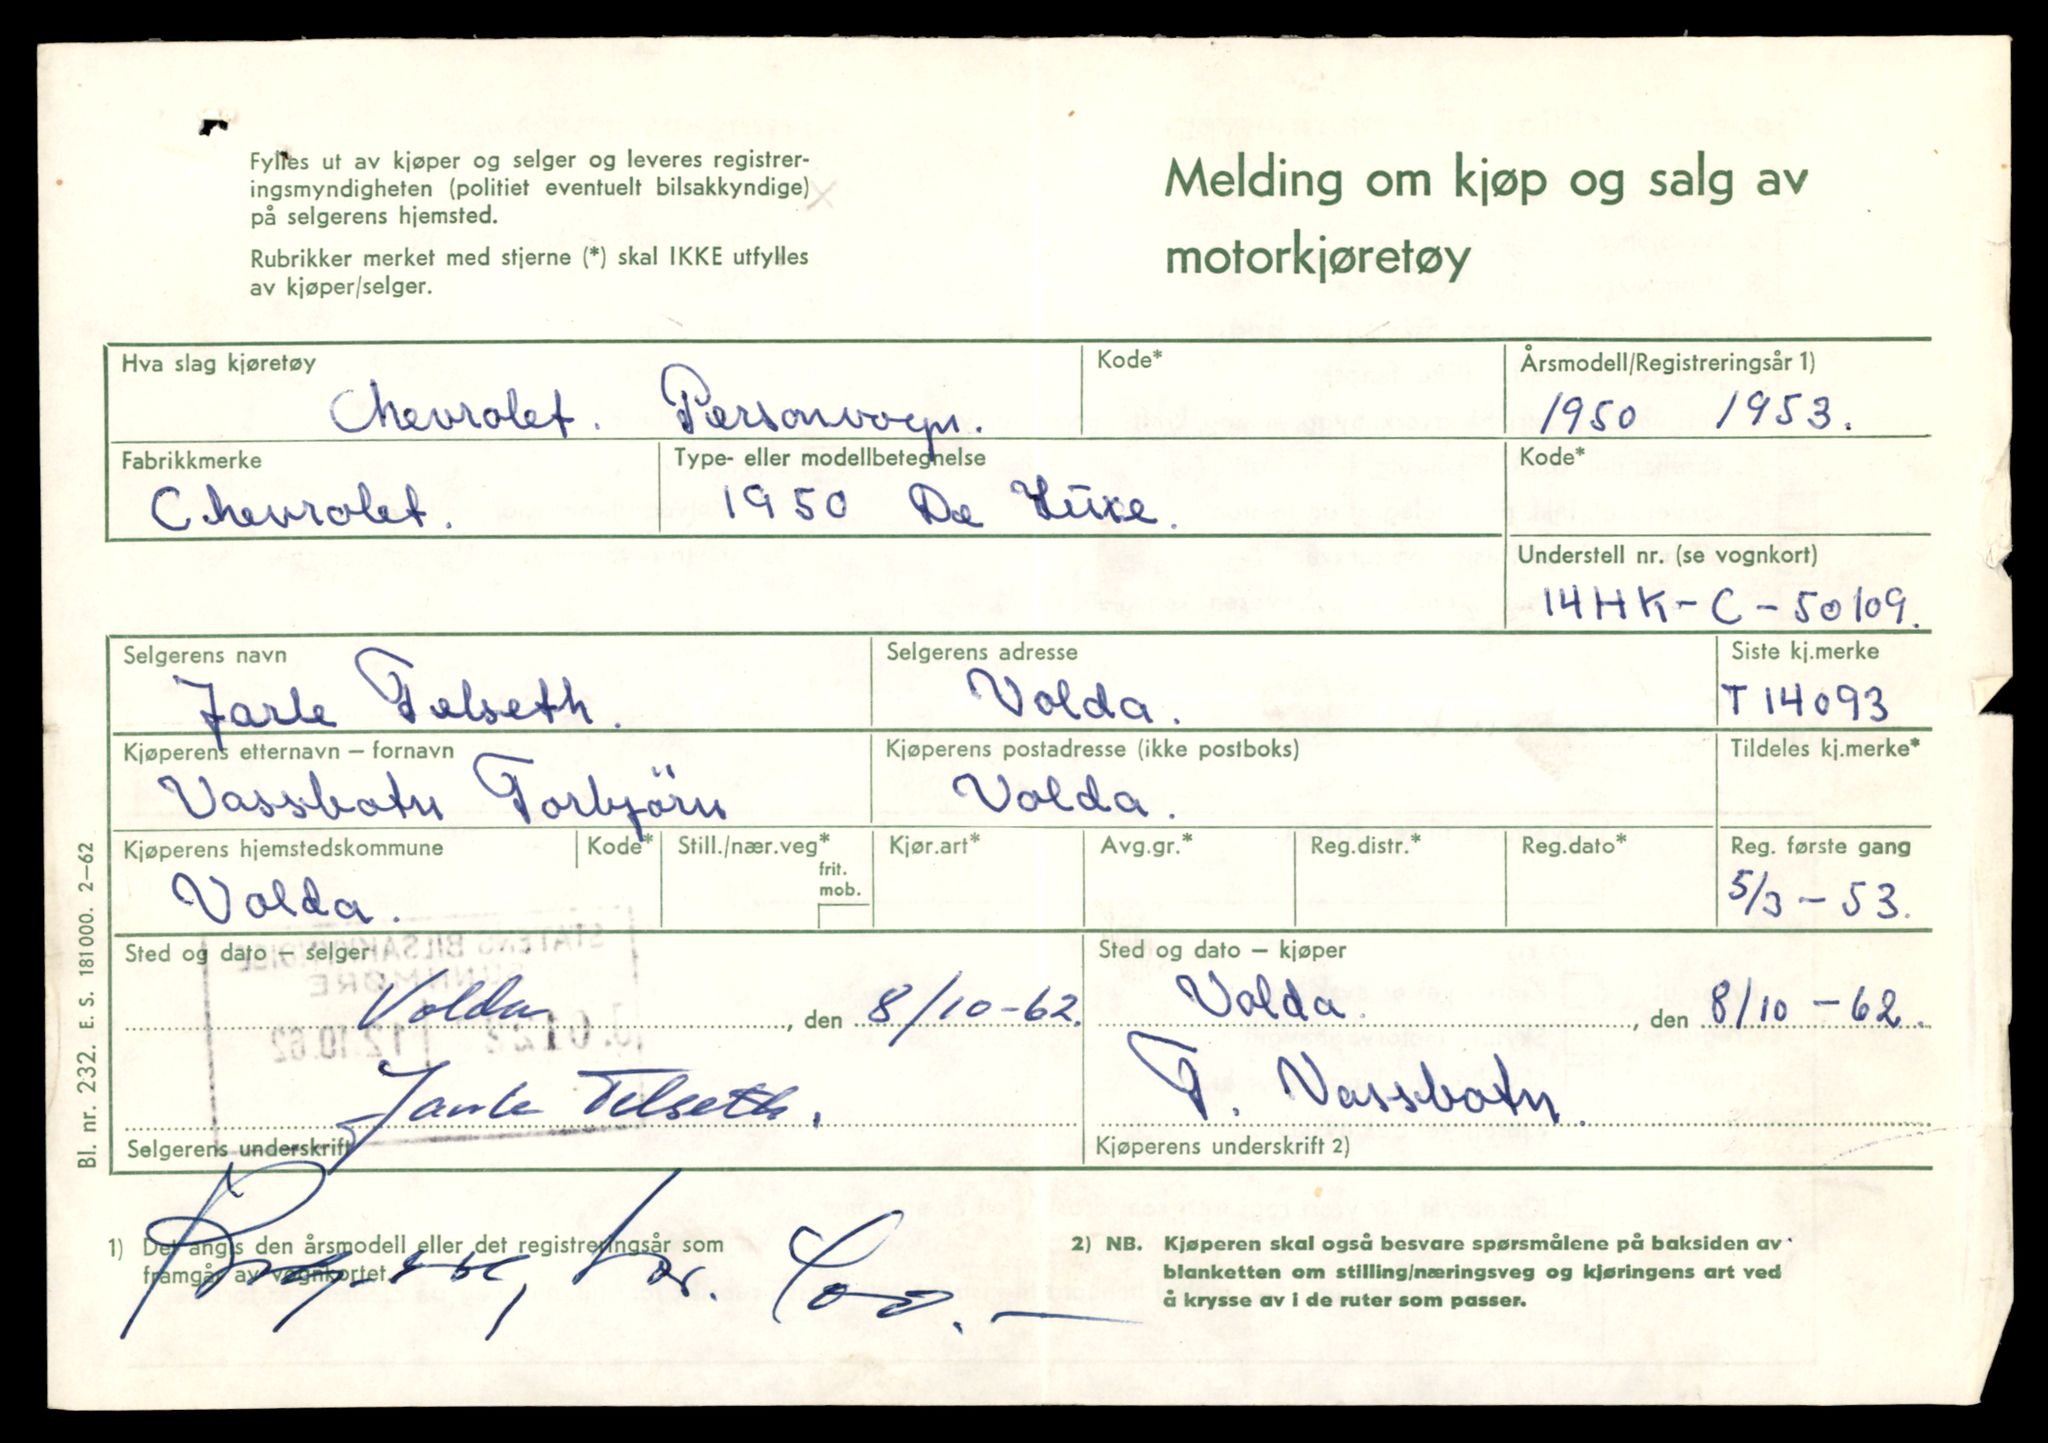 Fylles ut av kjøper og selger og leveres registrer-
ingsmyndigheten (politiet eventuelt bilsakkyndige)
på selgerens hjemsted.
Rubrikker merket med stjerne (*) skal IKKE utfylles
av kjøper/selger.
Melding om kjøp og salg av
motorkjøretøy
Hva slag kjøretøy
Chevrolet. Personvogn.
Kode*
Årsmodell/Registreringsår 1)
1950 1953.
Fabrikkmerke
Chevrolet.
Type- eller modellbetegnelse
1950 De Luxe.
Kode*
Understell nr. (se vognkort)
14HK-C-50109.
Selgerens navn
Jarle Telseth.
Selgerens adresse
Volda.
Siste kj.merke
T 14093
Kjøperens etternavn – fornavn
Vassbotn Torbjörn
Kjøperens postadresse (ikke postboks)
Volda.
Tildeles kj.merke*
Kjøperens hjemstedskommune
Volda.
Kode*
Still./nær.veg*
frit.
mob.
Kjør.art*
Avg.gr.*
Reg.distr.*
Reg.dato*
Reg. første gang
5/3 - 53.
Sted og dato – selger
Volda, den 8/10-62.
Jarle Telseth.
Selgerens underskrift
Sted og dato – kjøper
Volda., den 8/10 - 62.
T. Vassbotn.
Kjøperens underskrift 2)
STATENS BILSAKKYNDIGE
SUNNMØRE
12.10.62
1) Det angis den årsmodell eller det registreringsår som
framgår av vognkortet.
2) NB. Kjøperen skal også besvare spørsmålene på baksiden av
blanketten om stilling/næringsveg og kjøringens art ved
å krysse av i de ruter som passer.
Bl. nr. 232. E. S. 181000. 2–62